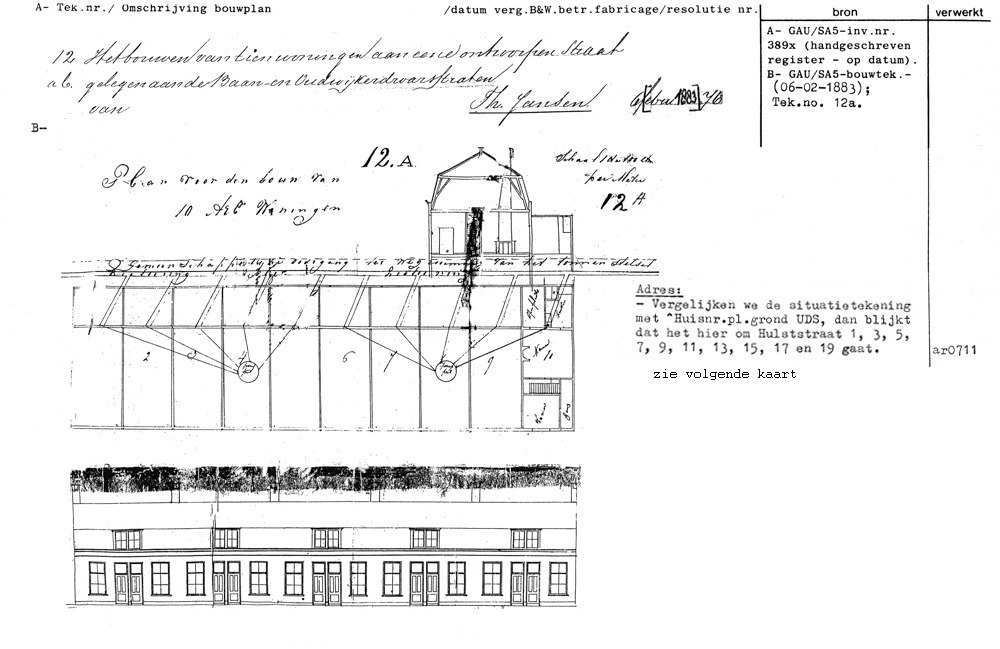 A- Tek.nr./ Omschrijving bouwplan
/datum verg.B&W.betr.fabricage/resolutie nr.
bron
verwerkt
12 Het bouwen van tien woningen aan eene ontworpen Straat
a.b. gelegen aan de Baan- en Oudwijkerdwarsstraten
van
Th. Jansen
[1883]
A- GAU/SA5-inv.nr.
389x (handgeschreven
register - op datum).
B- GAU/SA5-bouwtek.-
(06-02-1883);
Tek.no. 12a.
B-
12.A.
Plan voor den bouw van
10 Arb Woningen
per Meter
12 A
van het
2
3
4
6
7
9
11
Adres:
- Vergelijken we de situatietekening
met ^Huisnr.pl.grond UDS, dan blijkt
dat het hier om Hulststraat 1, 3, 5,
7, 9, 11, 13, 15, 17 en 19 gaat.
ar0711
zie volgende kaart